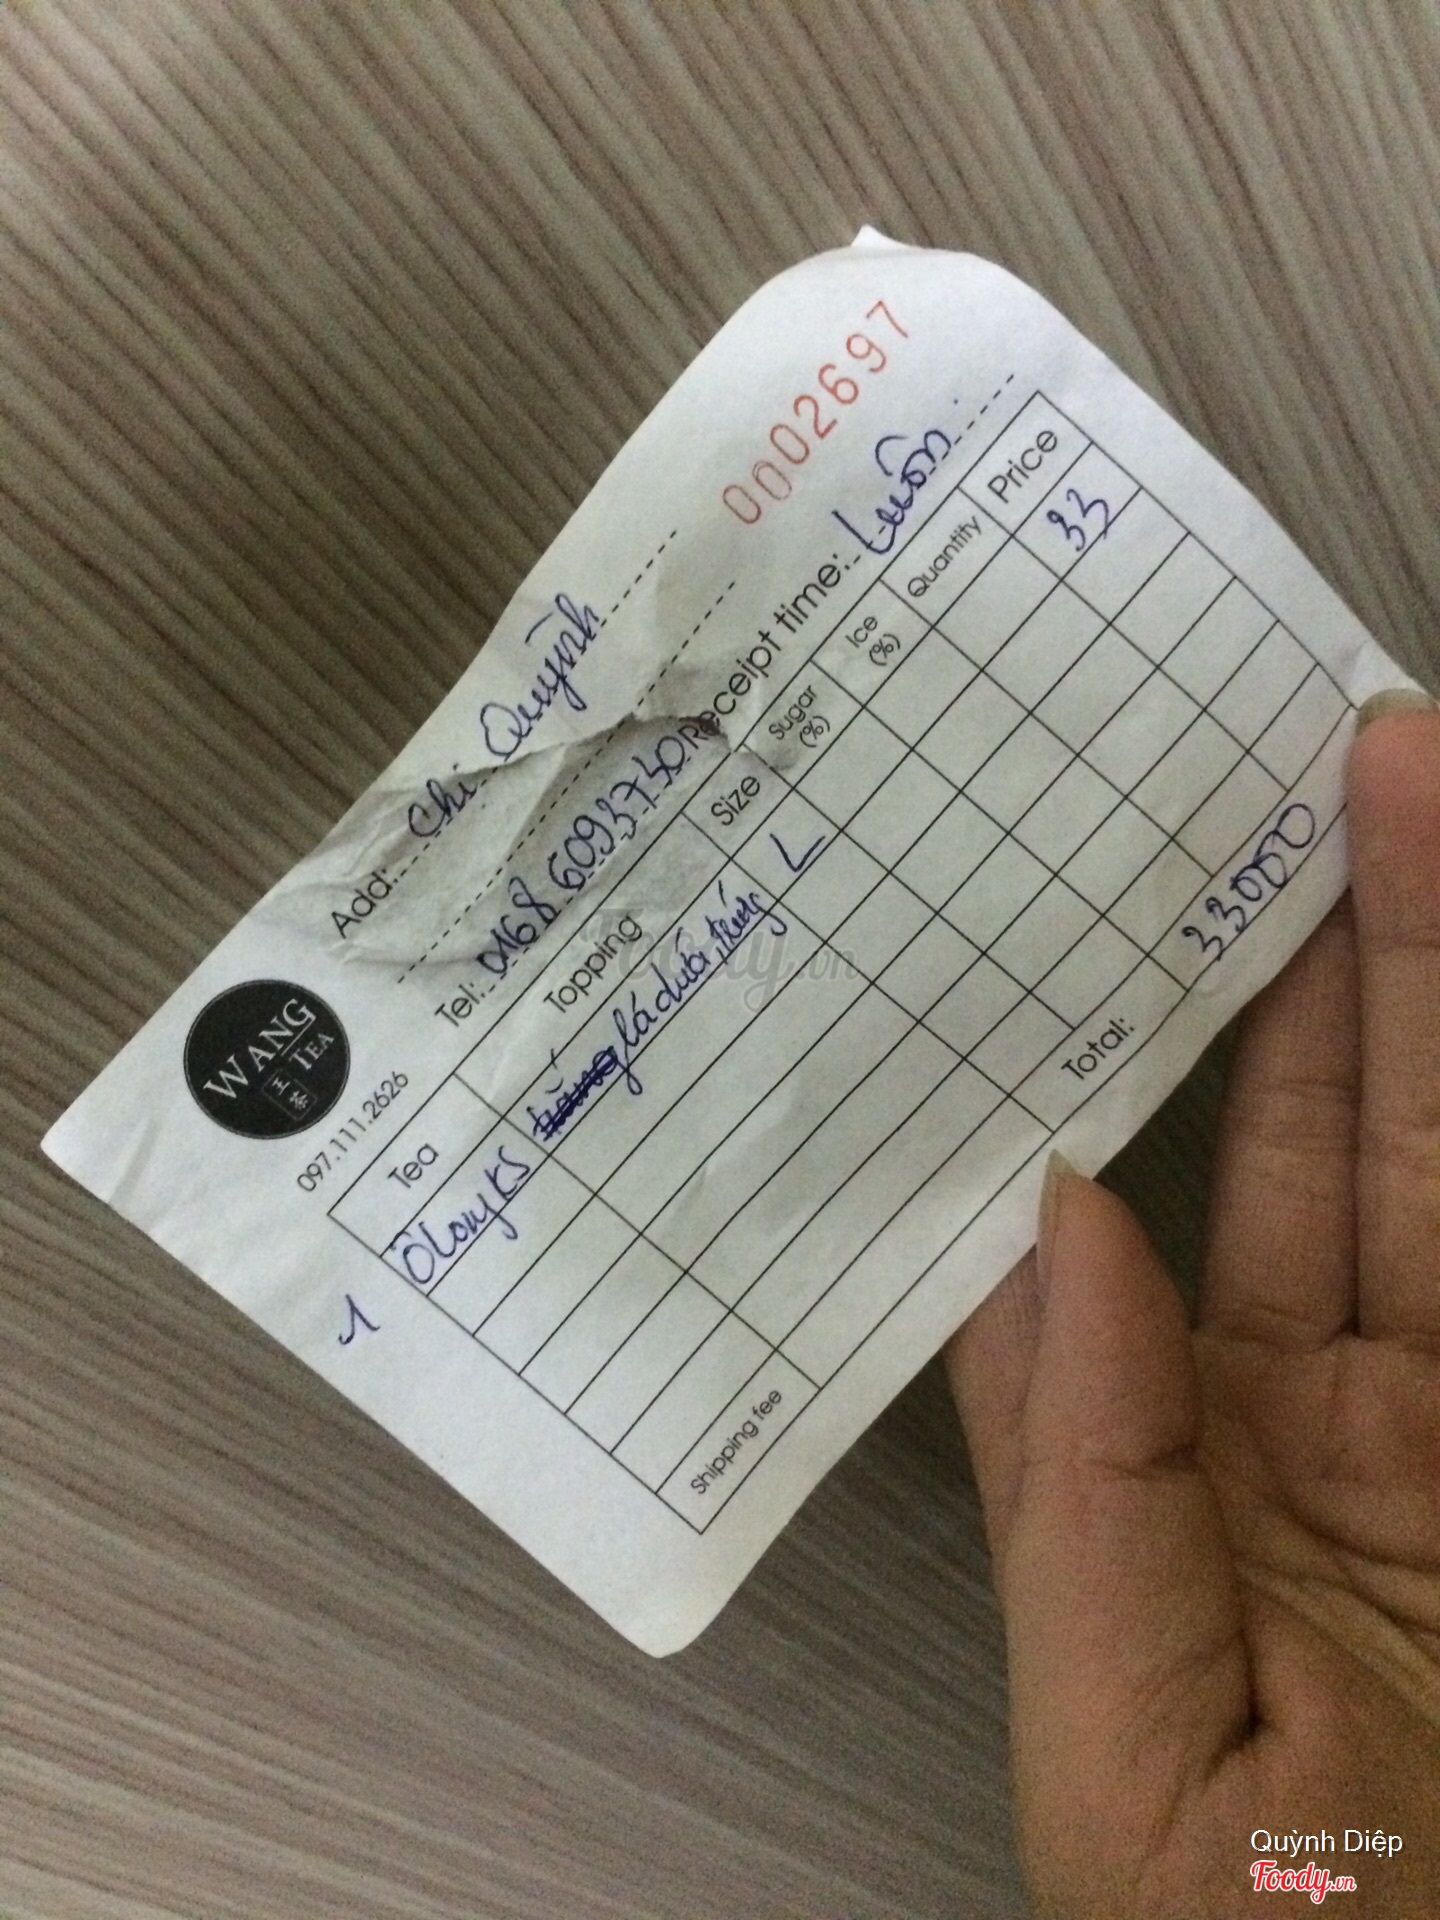 WANG
TEA
王
茶
097.111.2626
0002697
Add: Chị Quỳnh
Tel: 0168 6093730 Receipt time: Luôn
Tea Topping Size Sugar (%) Ice (%) Quantity Price
1 Ôlong KS lá dứa, L 33
Shipping fee
Total: 33000
Foody.vn
Quỳnh Diệp
Foody.vn